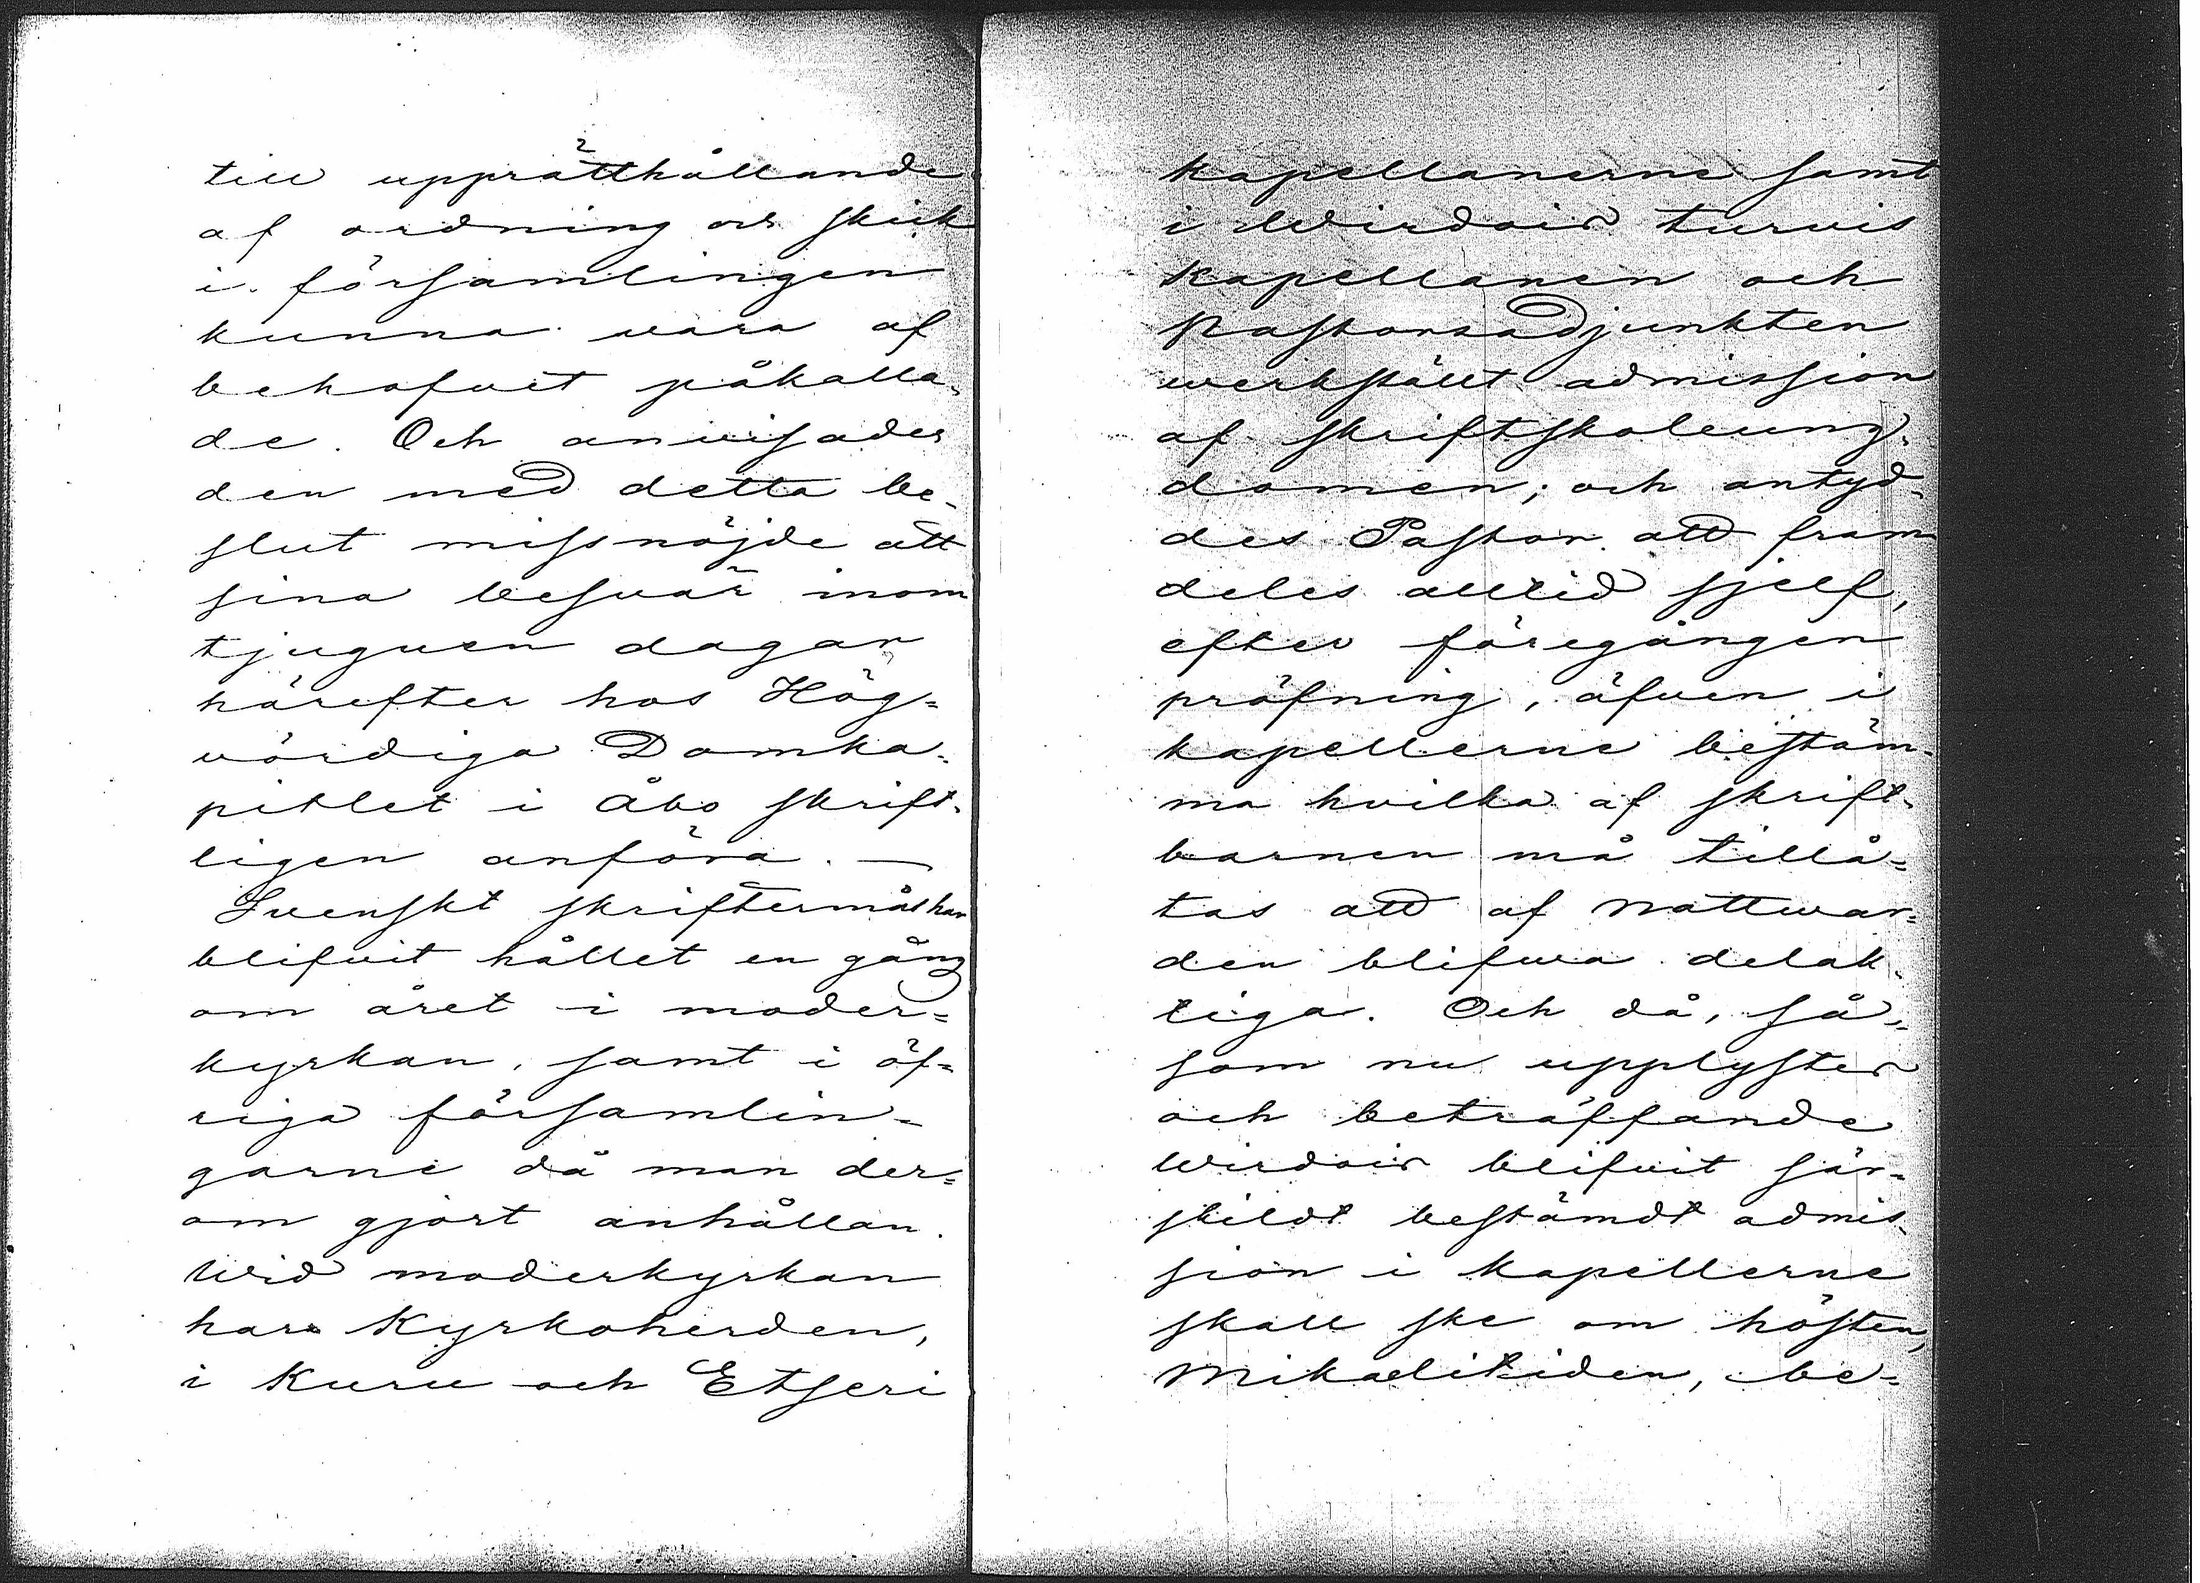 till upprätthållande
af ordning och skick
i församlingen
kunna vara af
behofvet påkalla-
de. Och anvisades
den med detta be-
slut missnöjde att
sina besvär inom
tjuguen dagar
härefter hos Hög=
vördiga Domka-
pitlet i Åbo skrift-
ligen anföra. —
Svenskt skriftermål har
blifvit hållet en gång
om året i moder=
kyrkan, samt i öf=
riga församlin-
garne då man der=
om gjort anhållan.
Wid moderkyrkan
har Kyrkoherden,
i Kuru och Etseri
kapellanerne samt
i Wirdois turvis
kapellanen och
Pastorsadjunkten
werkstält admission
af skriftskoleung-
domen; och antyd-
des Pastor att fram
deles alltid sjelf,
efter föregången
pröfning, äfven i
kapellerne bestäm-
ma hvilka af skrift-
barnen må tillå=
tas att af nattwar=
den blifwa delak-
tiga. Och då, så=
som nu upplystes
och beträffande
Wirdois blifvit sär-
skildt bestämdt admis-
sion i kapellerne
skall ske om hösten,
Mikaelitiden, be=